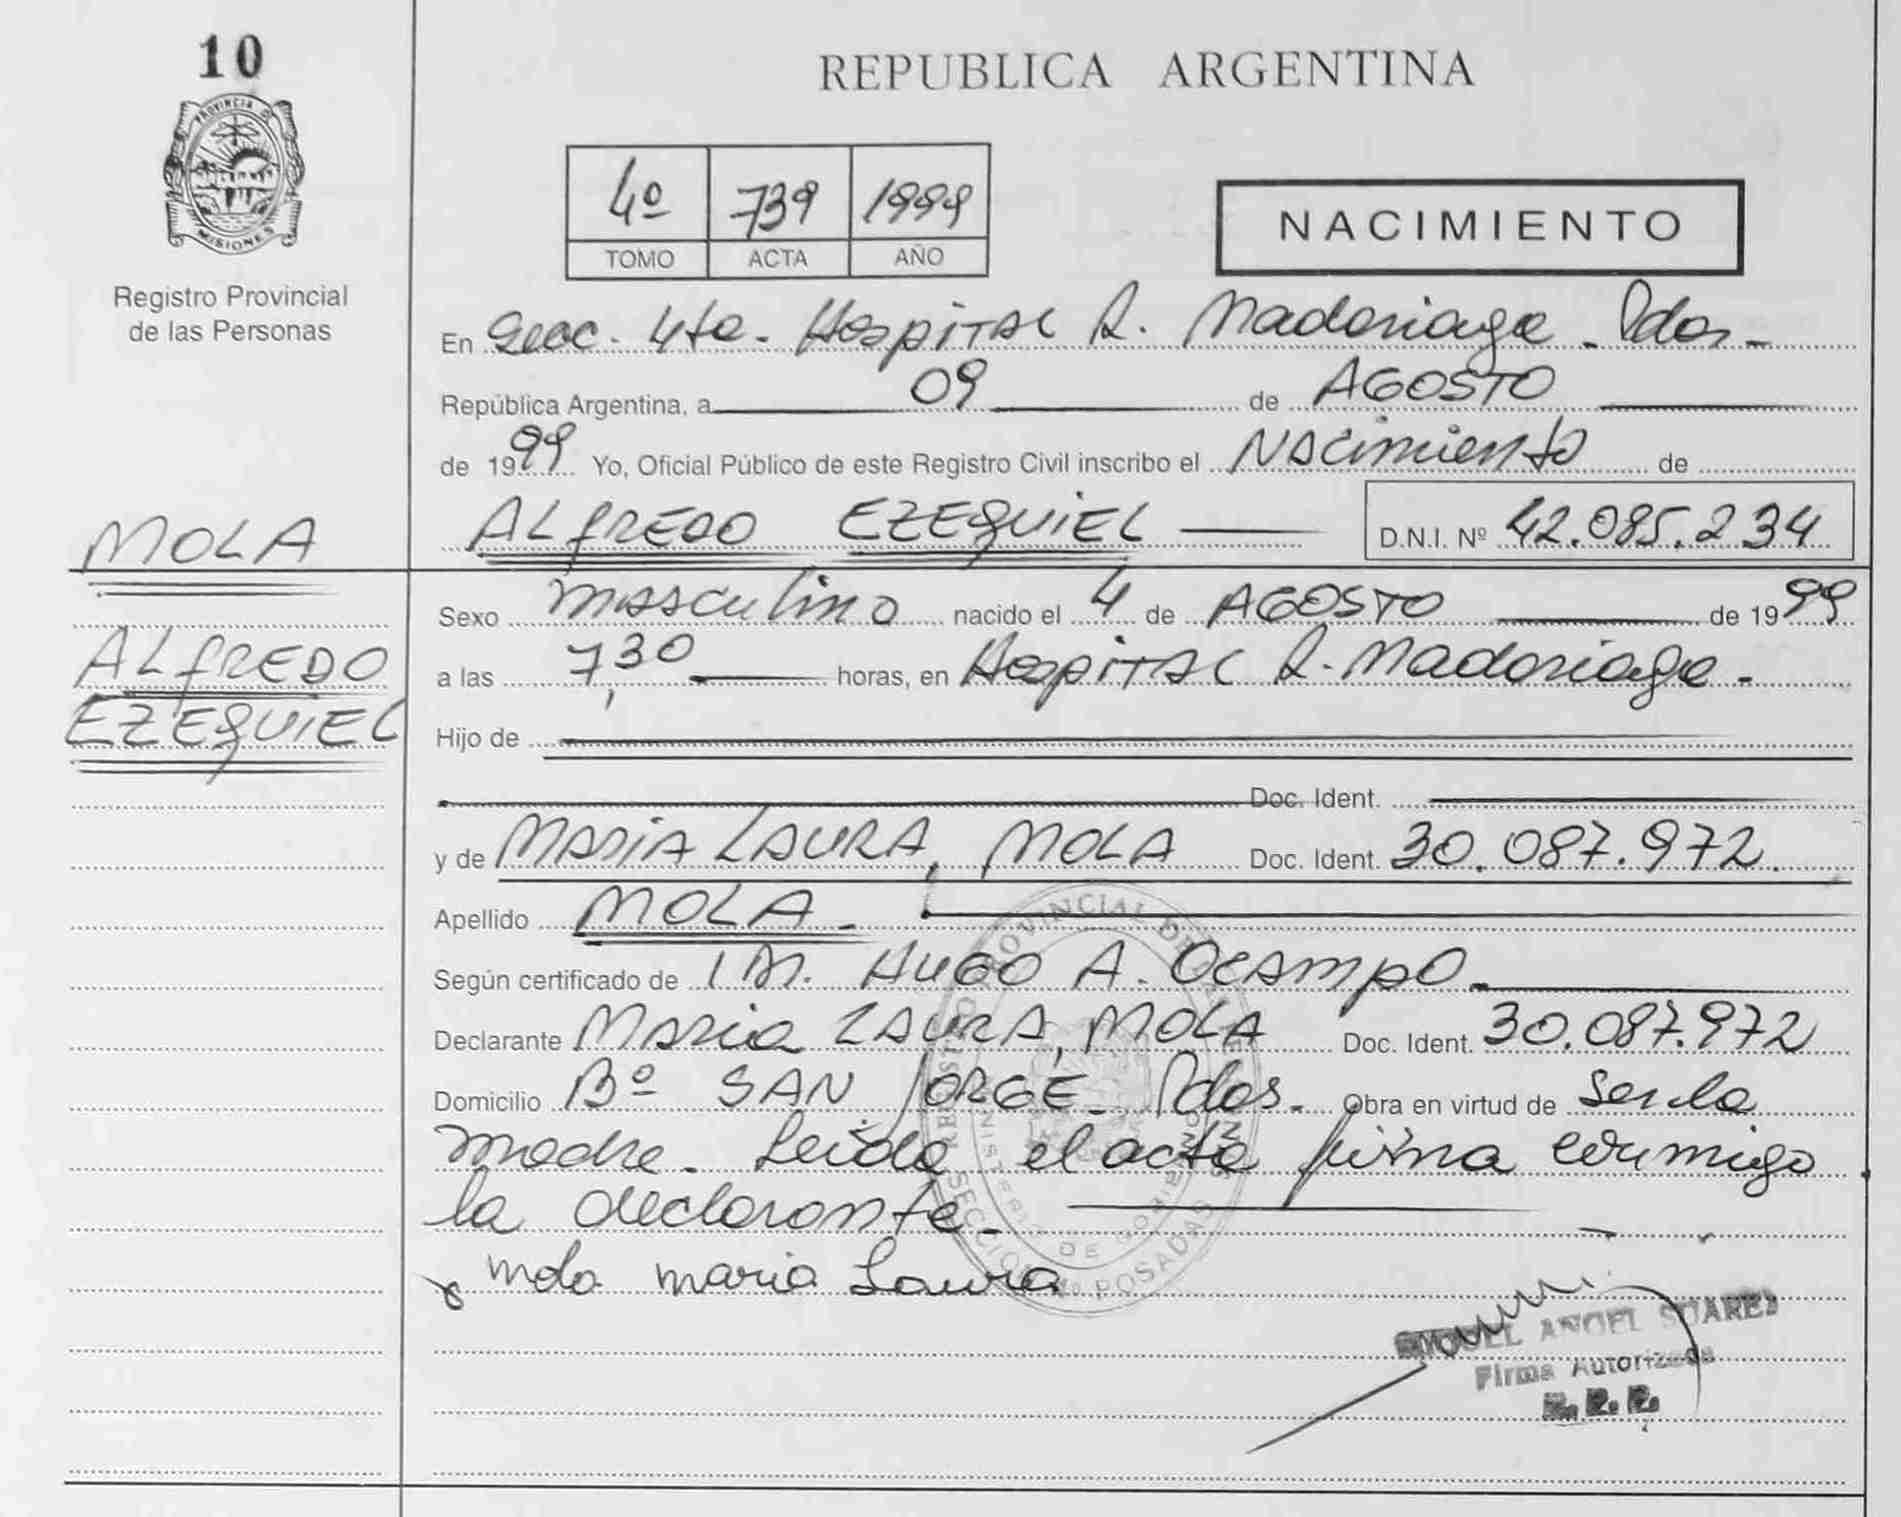 10
PROVINCIA DE
MISIONES
Registro Provincial
de las Personas
MOLA
ALFREDO
EZEQUIEL
REPUBLICA ARGENTINA
4º 739 1999
TOMO ACTA AÑO
NACIMIENTO
En Secc. 4ta. Hospital R. Madariaga - Pdas -
República Argentina, a 09 de AGOSTO
de 1999 Yo, Oficial Público de este Registro Civil inscribo el Nacimiento de
ALFREDO EZEQUIEL D.N.I. Nº 42.085.234
Sexo masculino nacido el 4 de AGOSTO de 1999
a las 7,30 horas, en Hospital R. Madariaga -
Hijo de
Doc. Ident.
y de MARIA LAURA, MOLA Doc. Ident. 30.087.972.
Apellido MOLA -
Según certificado de HUGO A. OCAMPO
Declarante Maria LAURA, MOLA Doc. Ident. 30.087.972
Domicilio Bº SAN JORGE - Pdas. Obra en virtud de Ser la
madre. Leída el acta firma conmigo
la declarante -
mola maria Laura
REGISTRO PROVINCIAL DE LAS
MINISTERIO DE GOBIERNO
SECCION POSADAS
MIGUEL ANGEL SUAREZ
Firma Autorizada
R. P. P.